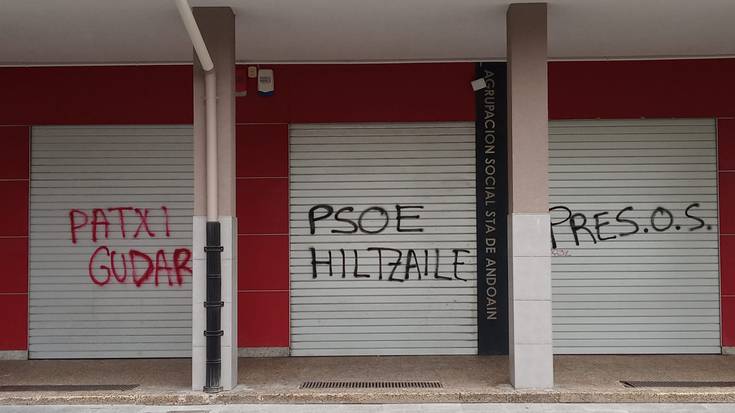 PATXI
GUDAR
PSOE
HILTZAILE
AGRUPACION SOCIALISTA DE ANDOAIN
PRES.O.S.